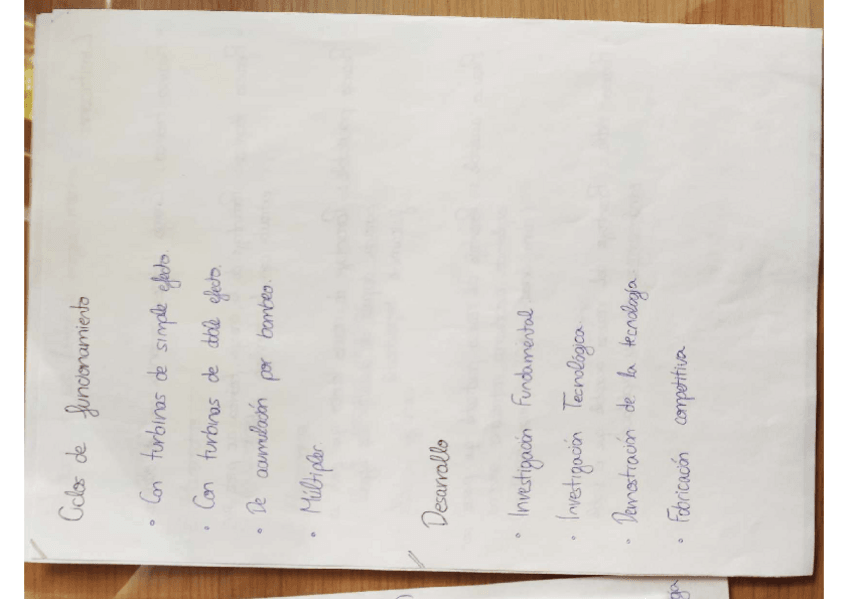 Ciclos de funcionamiento
• Con turbinas de simple efecto.
• Con turbinas de doble efecto.
• De acumulación por bombeo.
• Múltiples.
Desarrollo
• Investigación Fundamental
• Investigación Tecnológica.
• Demostración de la tecnología
• Fabricación competitiva